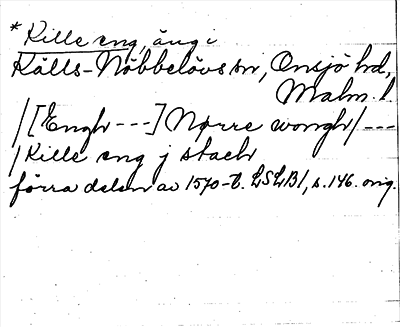 * Kille eng, äng i
Källs-Nöbbelövs sn, Onsjö hd,
Malm. l.
/[Enghr ---] Nørre wongh/ ---
/Kille eng j stachr
förra delen av 1570-t. LSLB1, s. 146. orig.